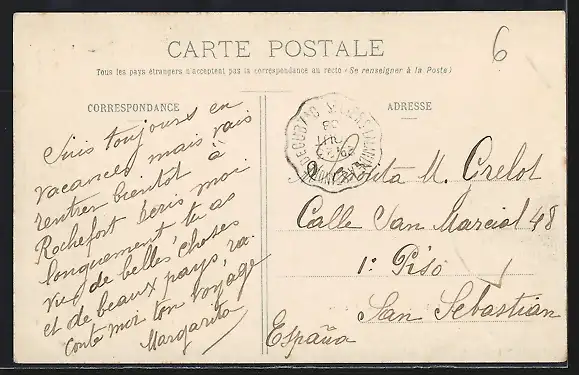 6
CARTE POSTALE
Tous les pays étrangers n'acceptent pas la correspondance au recto (Se renseigner à la Poste)
CORRESPONDANCE
ADRESSE
Suis toujours en
vacances mais vais
rentrer bientôt à
Rochefort écris moi
longuement tu as
vu de belles choses
et de beaux pays, ra-
conte moi ton voyage
Margarita
M. Grelot
Calle San Marcial 48
1º Piso
San Sebastian
España